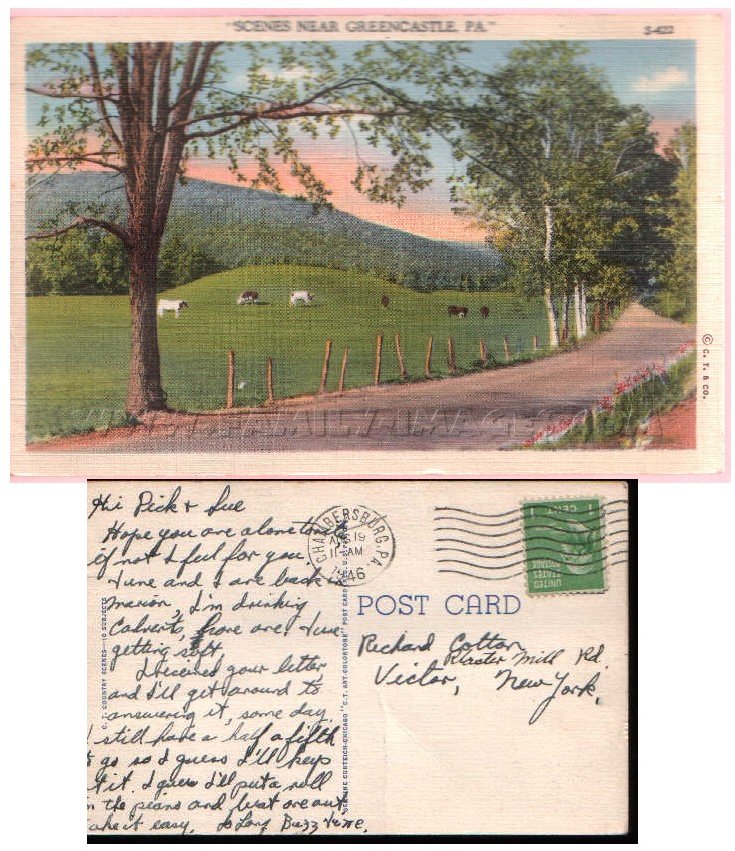 "SCENES NEAR GREENCASTLE, PA."
S-422
© C. T. & CO.
WWW.FAMILY-IMAGES.COM
Hi Dick & Sue
Hope you are alone
if not I feel for you
June and I are back in
Marion, I'm drinking
Calverts, have one! June
getting soft.
I received your letter
and I'll get around to
answering it, some day.
I still have a half a fifth
to go so I guess I'll keep
at it. I guess I'll put a roll
in the piano and beat one out,
Take it easy. So Long Buzz June.
C. T. COUNTRY SCENES—10 SUBJECTS
GENUINE CURTEICH-CHICAGO "C. T. ART-COLORTONE" POST CARD
CHAMBERSBURG, PA.
19
11 AM
1946
1 CENT 1
UNITED
STATES
POSTAGE
POST CARD
Richard Cotton
Mill Rd.
Victor, New York,